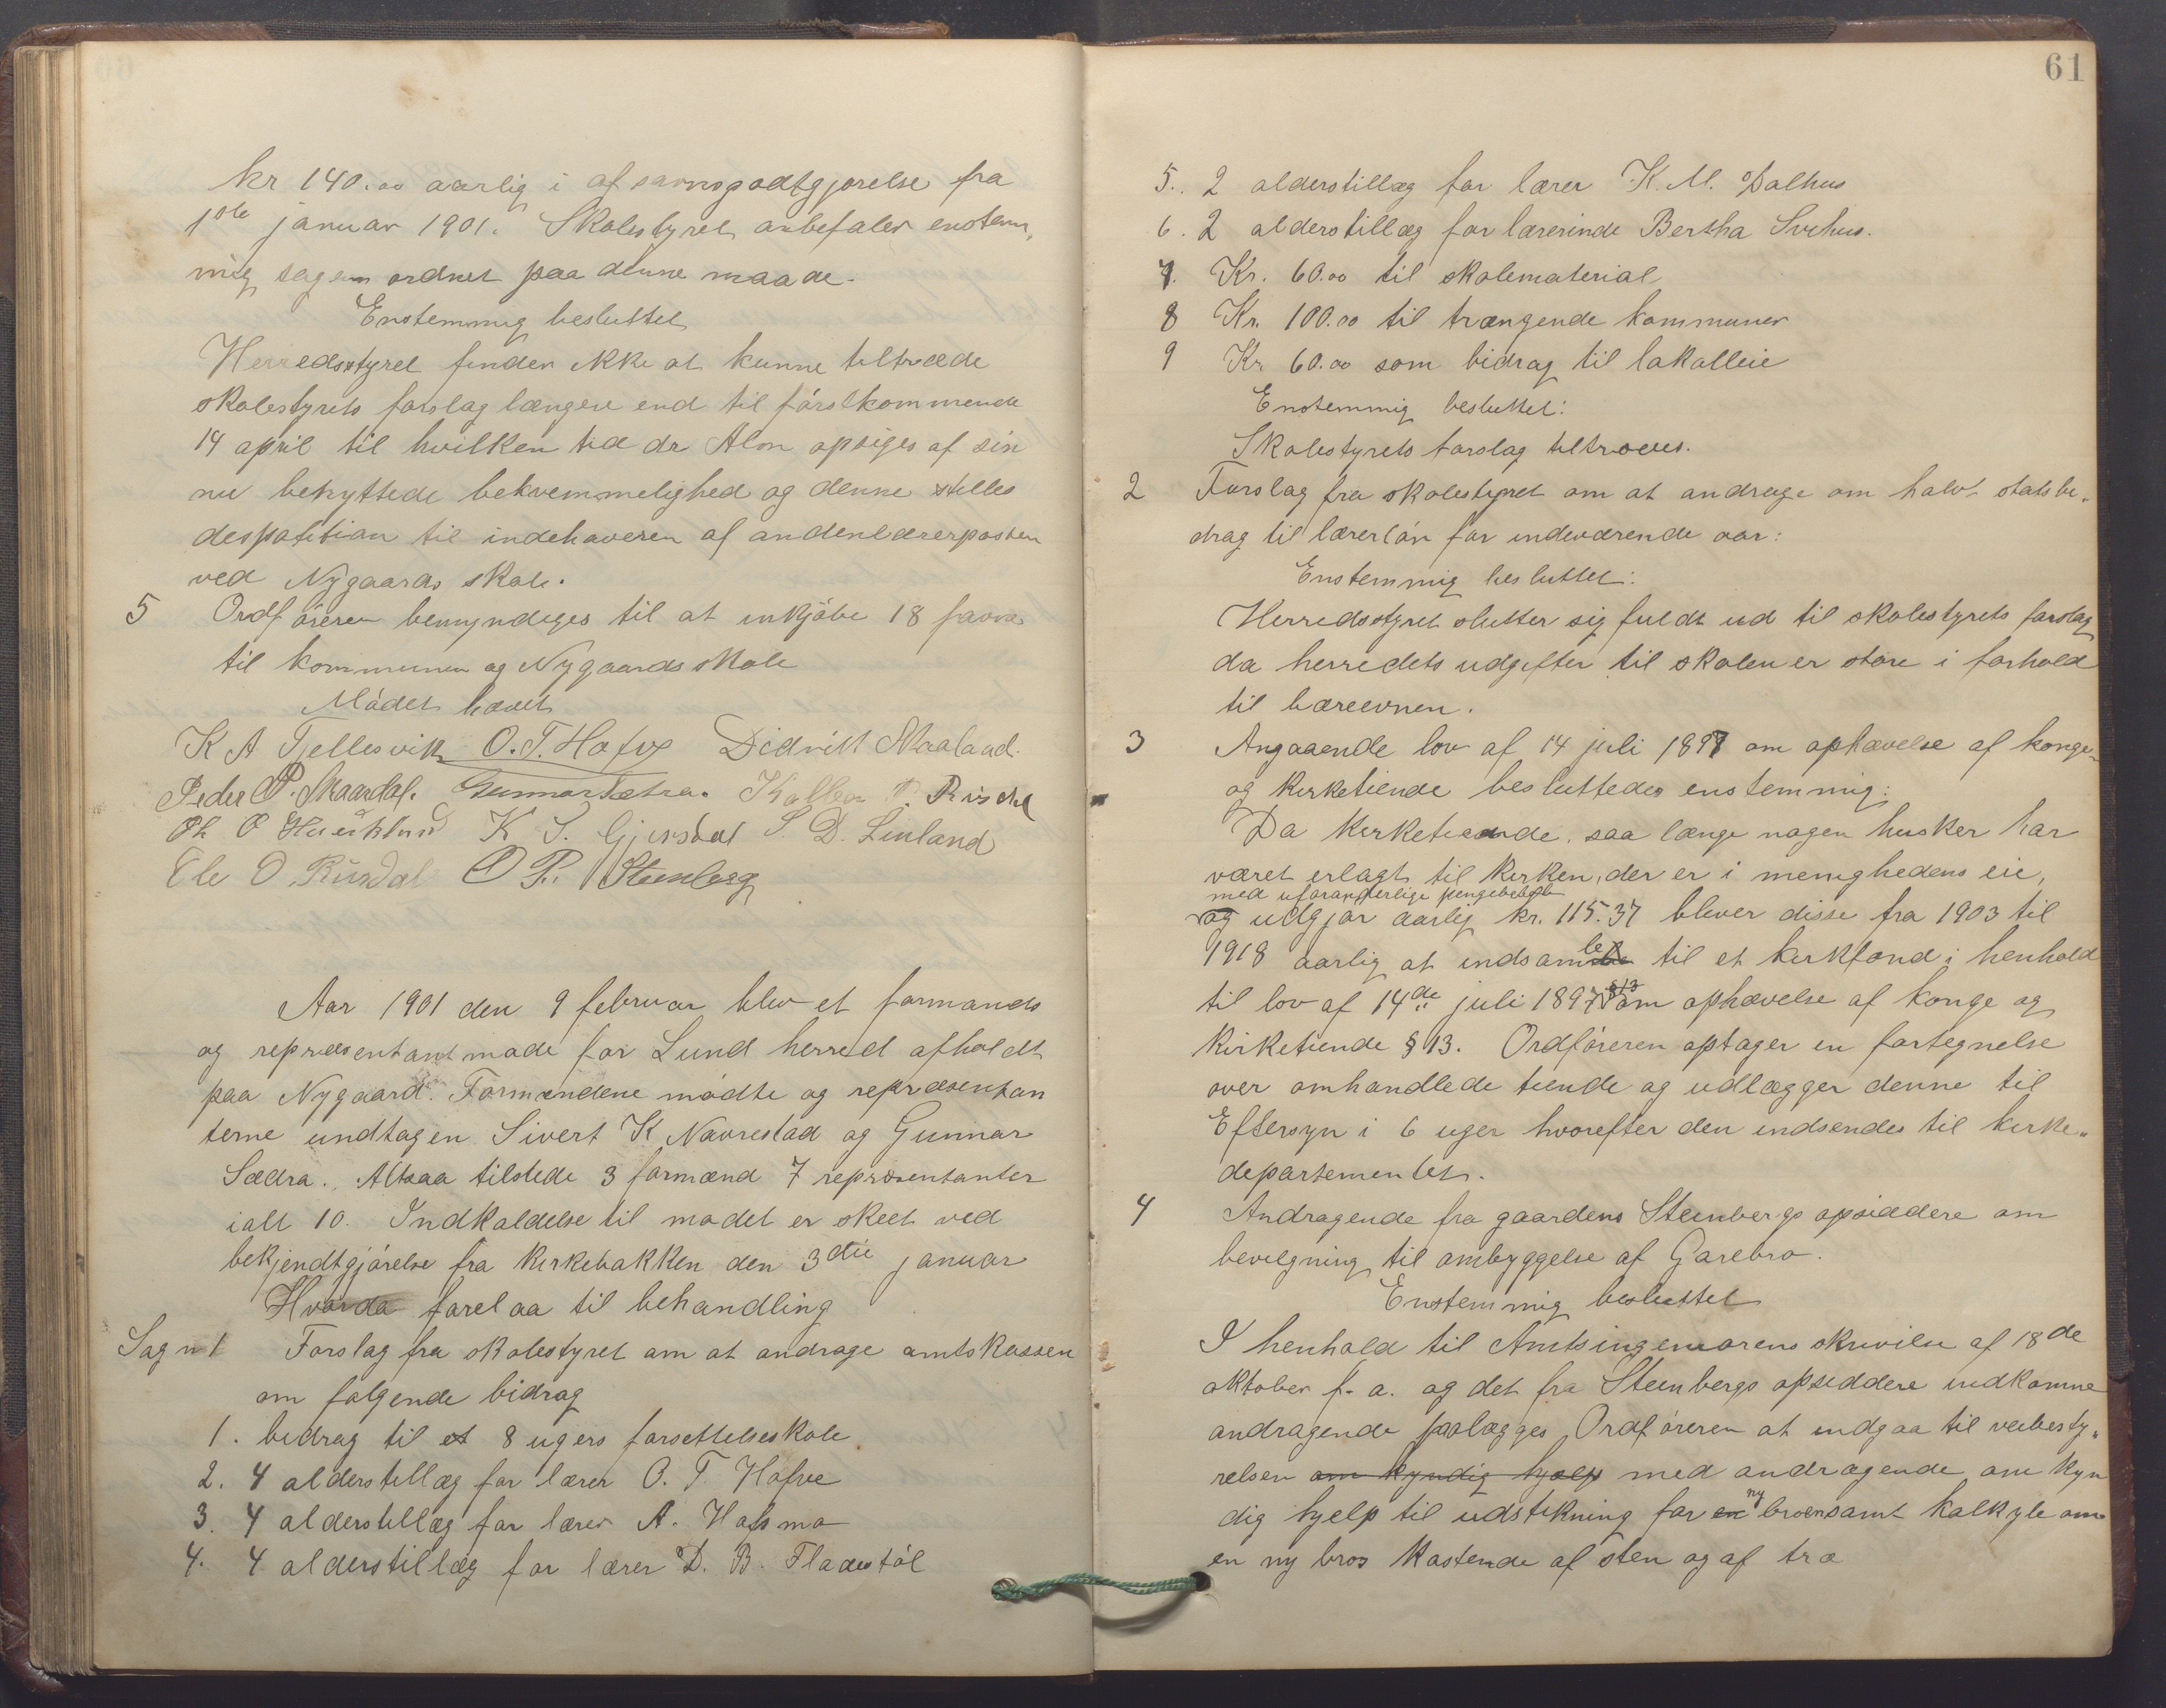 kr 140.00 aarlig i afsavnsgodtgjørelse fra
1ste januar 1901. Skolestyret anbefaler enstem„
mig sagen ordnet paa denne maade.
Enstemmig besluttet
Herredsstyret finder ikke at kunne tiltræde
skolestyrets forslag længere end til førstkommende
14 april til hvilken tid dr Alm opsiges af sin
nu benyttede bekvemmelighed og denne stilles
til indehaveren af andenlærerposten
ved Nygaards skole.
5 Ordføreren bemyndiges til at inkjøbe 18 favne
til kommunen og Nygaards skole
Mødet hævet
K A Tjellesvik O. T. Hofve Didrik Maaland.
Peder P. Skaardal. Gunnar Sætra. Kolben P. Risdal
O. K. S. Gjersdal S. D. Linland
Ele O. Rusdal O P. Steenberg
Aar 1901 den 9 februar blev et formands
og repræsentantmøde for Lund herred afholdt
paa Nygaard. Formændene mødte og repræsentan
terne undtagen Sivert K Navrestad og Gunnar
Sædra. Altsaa tilstede 3 formænd 7 repræsentanter
ialt 10. Indkaldelse til mødet er skeet ved
bekjendtgjørelse fra kirkebakken den 3die januar
Hvorda forelaa til behandling
Sag n 1 Forslag fra skolestyret om at andrage amtskassen
om følgende bidrag
1. bidrag til et 8 ugers forsettelseskole
2. 4 alderstillæg for lærer O. T. Hofve
3. 4 alderstillæg for lærer A. Hofsmo
4. 4 alderstillæg for lærer D. B. Fladestøl
61
5. 2 alderstillæg for lærer K. M. Dalhus
6. 2 alderstillæg for lærerinde Bertha Svehus.
7. Kr. 60.00 til skolematerial
8 Kr. 100.00 til trængende kommuner
9 Kr. 60.00 som bidrag til lokalleie
Enstemmig besluttet:
Skolestyrets forslag tiltrædes.
2 Forslag fra skolestyret om at andrage om halvt statsbi„
drag til lærerløn for indeværende aar:
Enstemmig besluttet:
Herredsstyret slutter sig fuldt ud til skolestyrets forslag
da herredets udgifter til skolen er store i forhold
til bæreevnen.
3 Angaaende lov af 14 juli 1897 om ophævelse af konge„
og kirketiende besluttedes enstemmig:
Da kirketiende, saa længe nogen husker har
været erlagt til kirken, der er i menighedens eie,
med uforanderlige pengebeløb
og udgjør aarlig kr. 115.37 bliver disse fra 1903 til
1918 aarlig at indsamle til et kirkfond i henhold
til lov af 14de juli 1897 § 13 om ophævelse af konge og
kirketiende § 13. Ordføreren optager en fortegnelse
over omhandlede tiende og udlægger denne til
Eftersyn i 6 uger hvorefter den indsendes til kirke„
departementet.
4 Andragende fra gaardens Steenbergs opsiddere om
bevilgning til ombyggelse af Garebro.
Enstemmig besluttet
I henhold til Amtsingeniørens skrivelse af 18de
oktober f. a. og det fra Steenbergs opsiddere indkomne
andragende paalægges Ordføreren at indgaa til veibesty„
relsen om kyndig hjælp med andragende om kyn
dig hjelp til udstikning for en ny broen samt kalkyle om
en ny bros kostende af sten og af træ